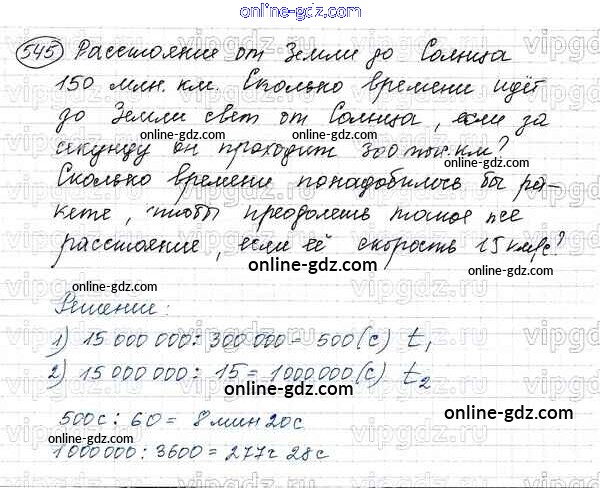 online-gdz.com
545 Расстояние от Земли до Солнца
150 млн. км. Сколько времени идёт
до Земли свет от Солнца, если за
online-gdz.com online-gdz.com
секунду он проходит 300 тыс. км?
online-gdz.com
Сколько времени понадобилось бы ра-
кете, чтобы преодолеть такое же
расстояние, если её скорость 15 км/с?
online-gdz.com online-gdz.com
Решение:
online-gdz.com
1) 15 000 000 : 300 000 = 500 (с) t₁
2) 15 000 000 : 15 = 1000000 (с) t₂
online-gdz.com online-gdz.com
500с : 60 = 8 мин 20с
online-gdz.com online-gdz.com
1000000 : 3600 = 277ч 28с
online-gdz.com
vipgdz.com